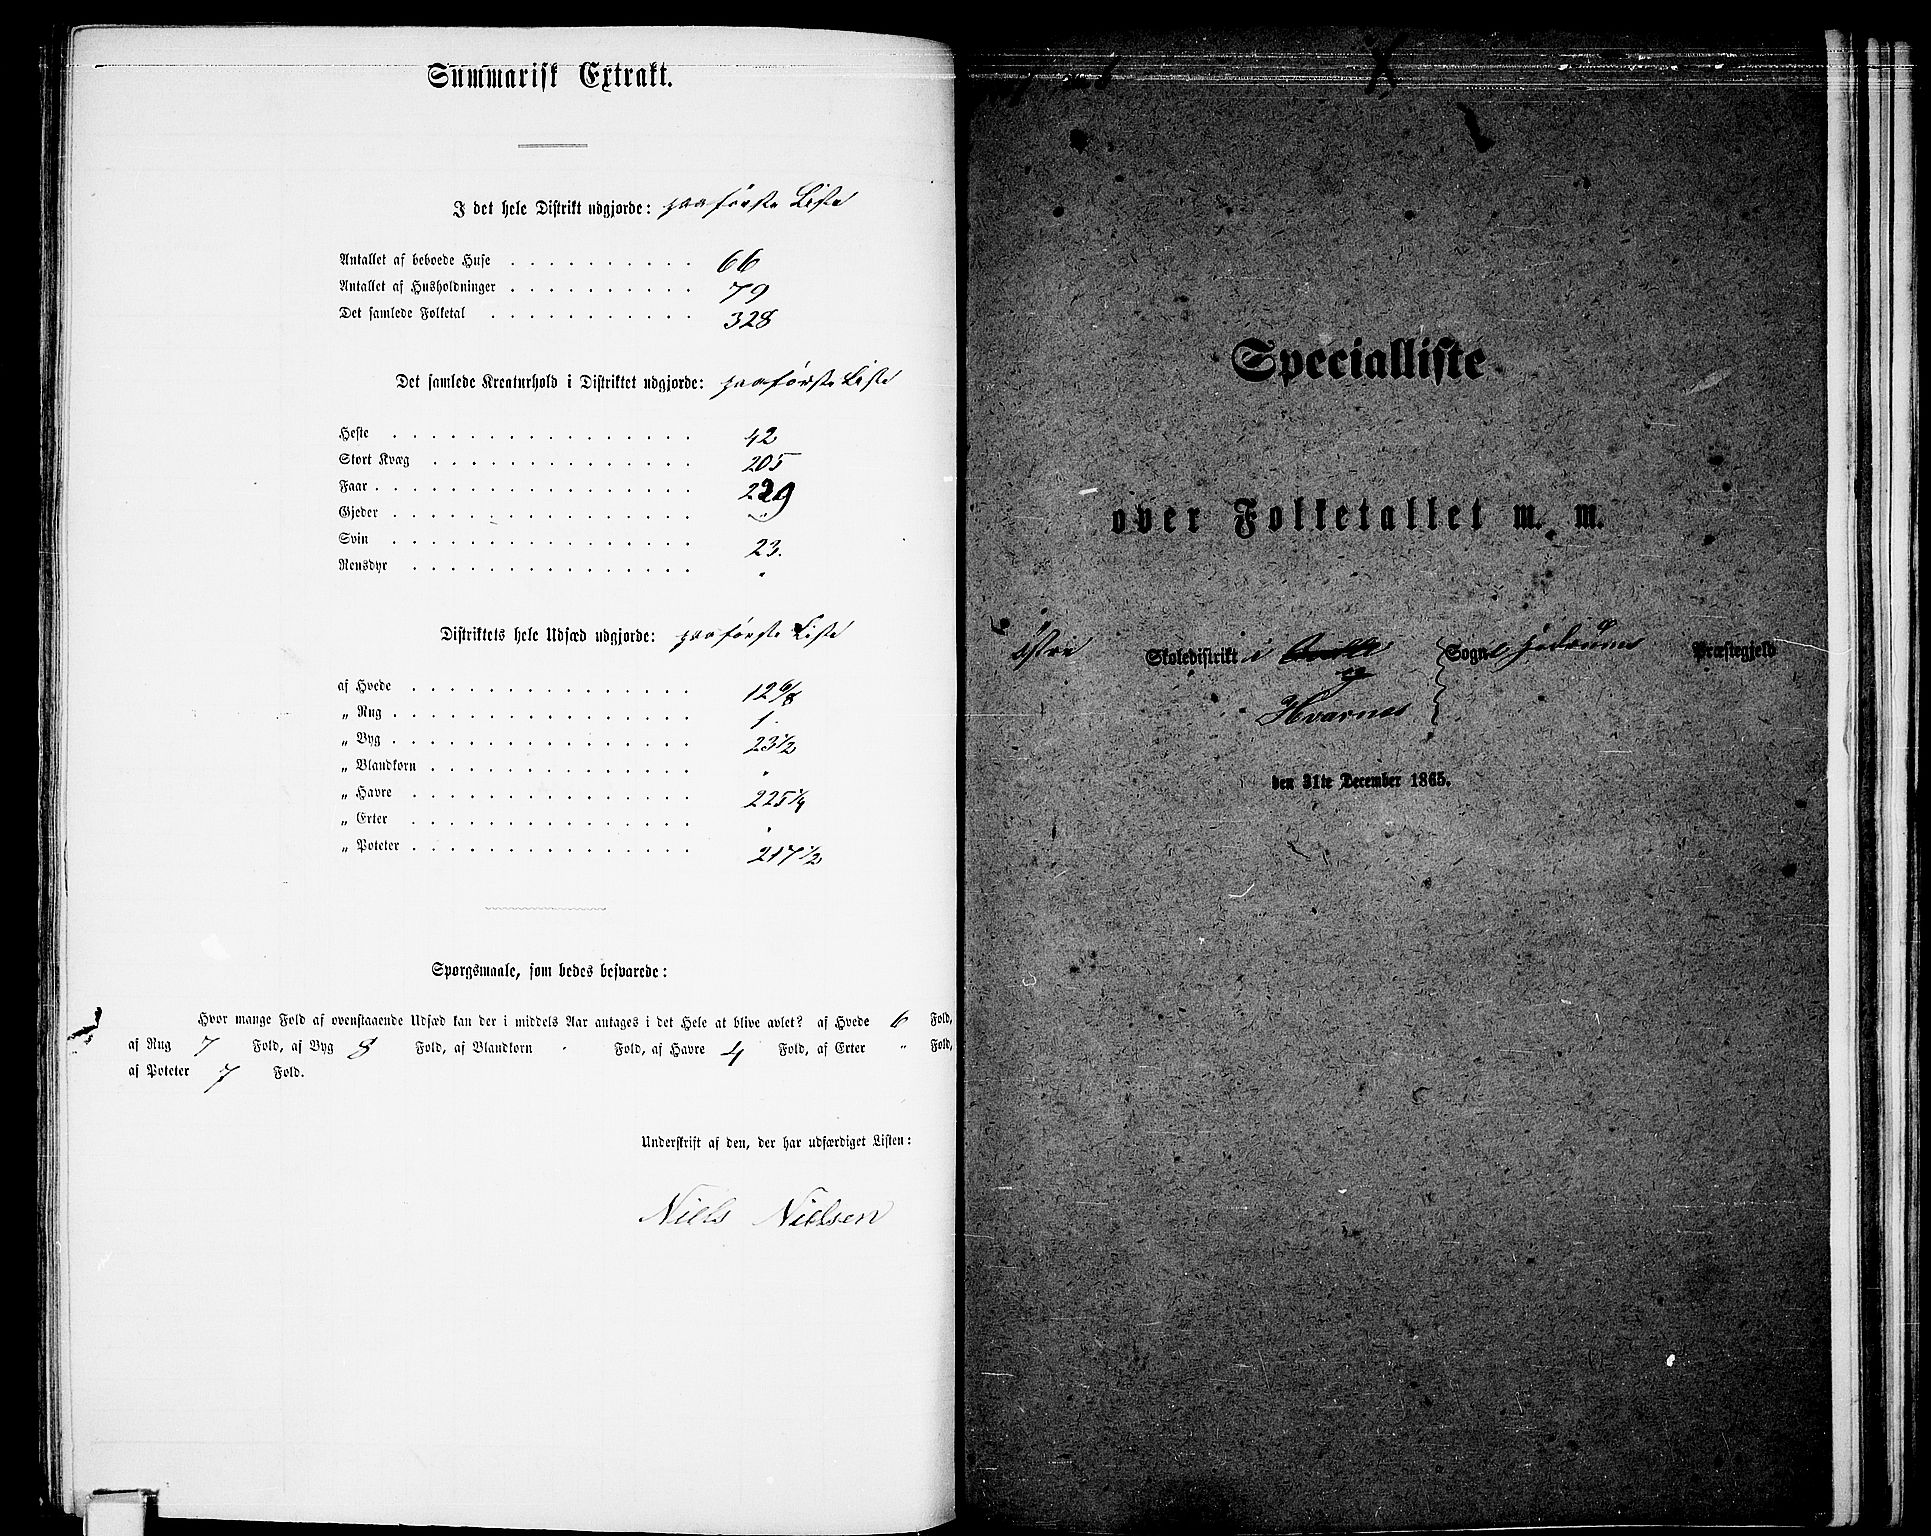 Summarisk Extrakt.
I det hele Distrikt udgjorde: paa første Liste
Antallet af beboede Huse . . . . . . . . . . 66
Antallet af Husholdninger . . . . . . . . . . 79
Det samlede Folketal . . . . . . . . . . . 328
Det samlede Kreaturhold i Distriktet udgjorde: paa første Liste
Heste . . . . . . . . . . . . . . . . 42
Stort Kvæg . . . . . . . . . . . . . . 205
Faar . . . . . . . . . . . . . . . . . 229
Gjeder . . . . . . . . . . . . . . . . "
Svin . . . . . . . . . . . . . . . . 23.
Rensdyr . . . . . . . . . . . . . . . "
Distriktets hele Udsæd udgjorde: paa første Liste
af Hvede . . . . . . . . . . . . . . . 12 6/8
„ Rug . . . . . . . . . . . . . . . . 1
„ Byg . . . . . . . . . . . . . . . . 23 1/2
„ Blandkorn . . . . . . . . . . . . . . "
„ Havre . . . . . . . . . . . . . . . 225 1/4
„ Erter . . . . . . . . . . . . . . . "
„ Poteter . . . . . . . . . . . . . . . 217 1/2
Spørgsmaale, som bedes besvarede:
Hvor mange Fold af ovenstaaende Udsæd kan der i middels Aar antages i det Hele at blive avlet? af Hvede 6 Fold,
af Rug 7 Fold, af Byg 8 Fold, af Blandkorn " Fold, af Havre 4 Fold, af Erter " Fold,
af Poteter 7 Fold.
Underskrift af den, der har udfærdiget Listen:
Niels Nielsen
Specialliste
over Folketallet m. m.
Østre Skoledistrikt i Sogn Hedrums Præstegjeld
Hvarnes
den 31te December 1865.